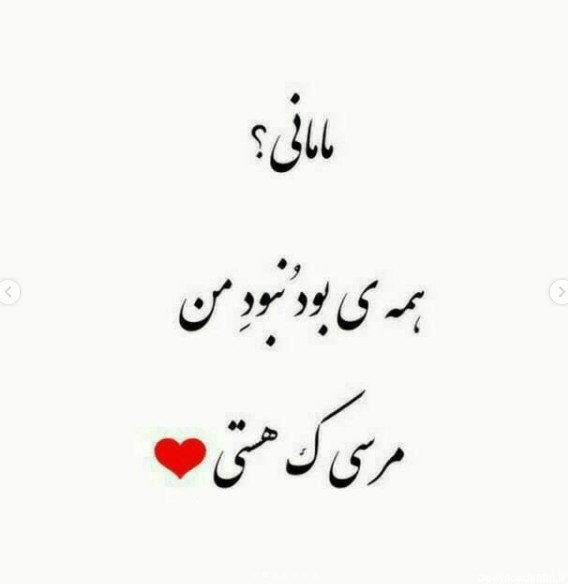 مامانی؟
همه ی بودُ نبودِ من
مرسی ک هستی ❤